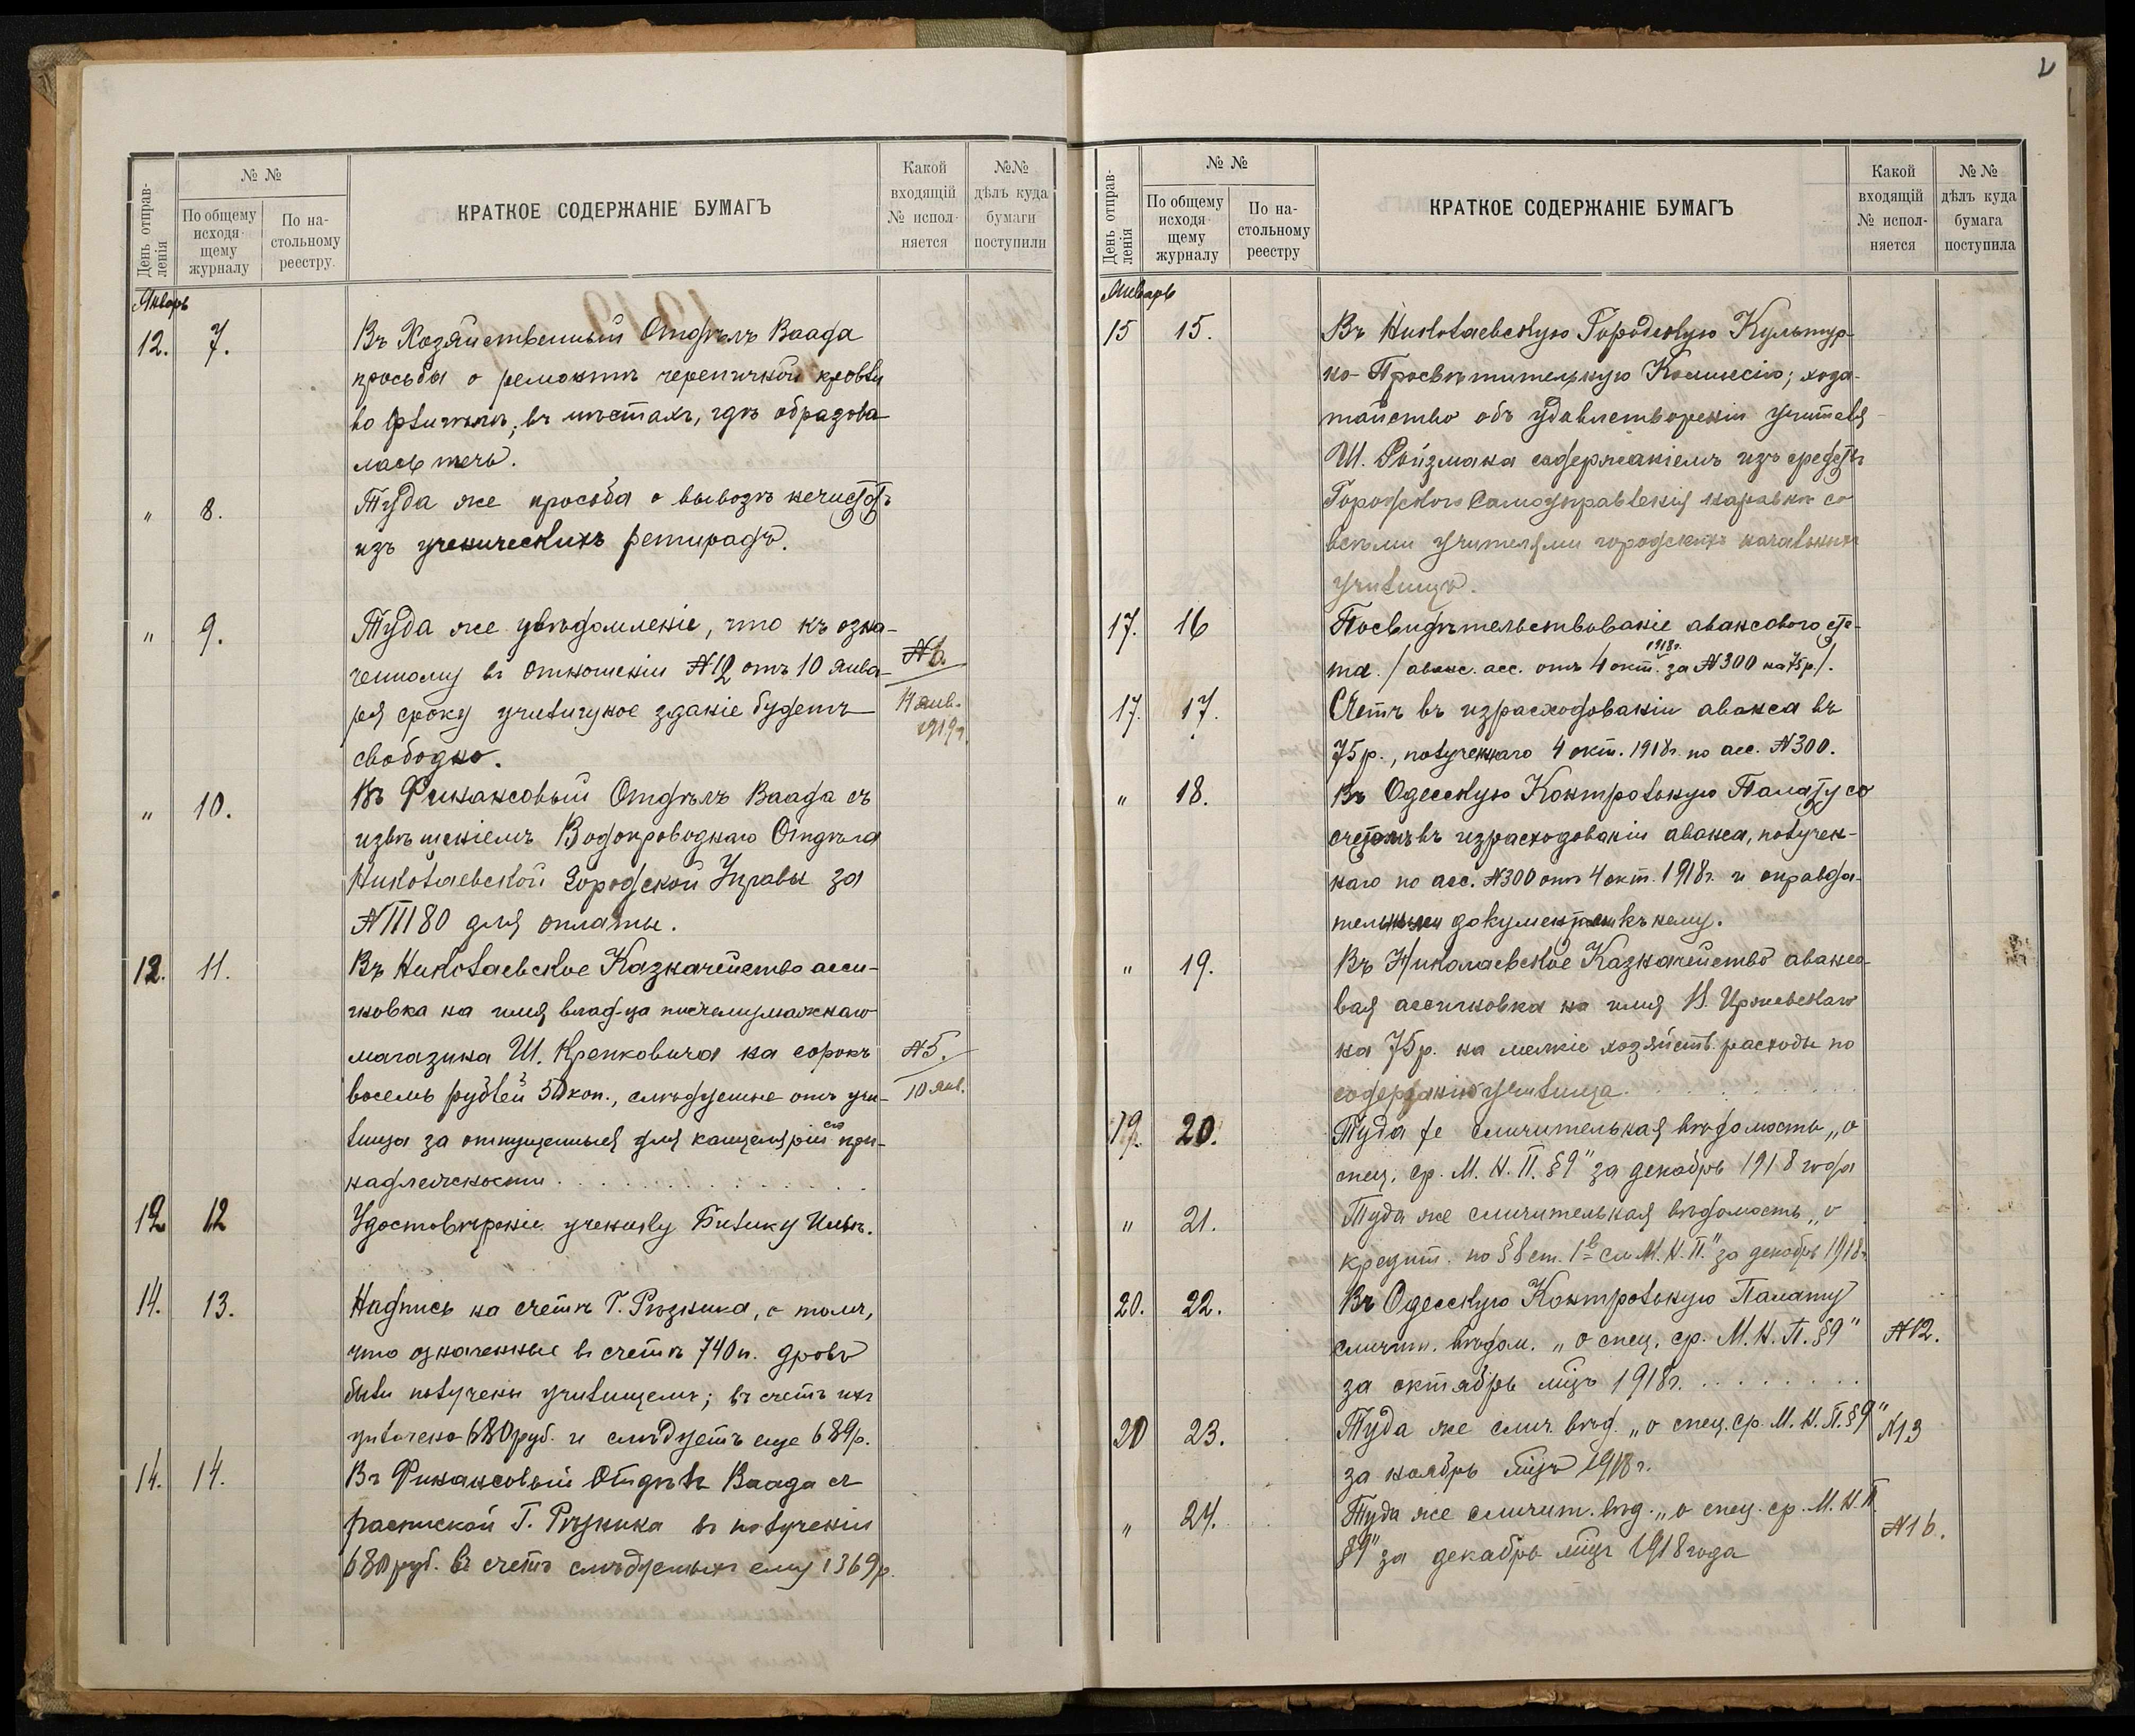 День отправ-
ленія
№ №
По общему
исходя-
щему
журналу
По на-
стольному
реестру.
КРАТКОЕ СОДЕРЖАНІЕ БУМАГЪ
Какой
входящій
№ испол-
няется
№№
дѣлъ куда
бумаги
поступили
Январь
12. 7. Въ Хозяйственный Отдѣлъ Ваада
просьба о ремонтѣ черепичной кровли
въ мѣстахъ, гдѣ образова-
лась течь.
" 8. Туда же просьба о вывозѣ нечистотъ
изъ ученическихъ ретирадъ.
" 9. Туда же увѣдомленіе, что къ озна-
ченному въ отношеніи №12 отъ 10 Янва- №6.
ря сроку училищное зданіе будетъ 11 янв.
свободно. 1919г.
" 10. Въ Финансовый Отдѣлъ Ваада съ
извѣщеніемъ Водопроводнаго Отдѣла
Николаевской Городской Управы за
для оплаты.
12. 11. Въ Николаевское Казначейство асси-
гновка на имя влад-ца писчебумажнаго
магазина Ш. Кренковича на сорокъ №5.
восемь рублей 50 коп., слѣдуемые отъ учи- 10 янв.
лища за отпущенныя для канцеляріи его при-
надлежности . . . . . . . . . .
12 12 Удостовѣреніе ученику Билику
14. 13. Надпись на счетѣ Г. Рѣзника, о томъ,
что означенные въ счетѣ 740 п. дровъ
были получены училищемъ; въ счетъ ихъ
уплочено 680 руб. и слѣдуетъ еще 689р.
14. 14. Въ Финансовый Отдѣлъ Ваада съ
распиской Г. Рѣзника въ полученіи
680 руб. въ счетъ слѣдуемыхъ ему 1369р.
День отправ-
ленія
№ №
По общему
исходя-
щему
журналу
По на-
стольному
реестру
КРАТКОЕ СОДЕРЖАНІЕ БУМАГЪ
Какой
входящій
№ испол-
няется
№ №
дѣлъ куда
бумага
поступила
Январь
15 15. Въ Николаевскую Городскую Культур-
но-Просвѣтительную Комиссію; хода-
тайство объ удовлетвореніи учителя
Ш. Ройзмана содержаніемъ изъ средствъ
Городского Самоуправленія наравнѣ со
всѣми учителями городскихъ начальныхъ
училищъ.
17. 16 Посвидѣтельствованіе авансового сче-
та. /аванс. асс. отъ 4 окт. 1918г. за №300 на 75р./.
17. 17. Счетъ въ израсходованіи аванса въ
75р., полученнаго 4 окт. 1918г. по асс. №300.
" 18. Въ Одесскую Контрольную Палату со
счетомъ въ израсходованіи аванса, получен-
наго по асс. №300 отъ 4 окт. 1918г. и оправда-
тельными документами къ нему.
" 19. Въ Николаевское Казначейство авансо-
вая ассигновка на имя
на 75р. на мелкіе хозяйств. расходы по
содержанію училища. . . . . .
19. 20. Туда же сличительная вѣдомость „о
спец. ср. М. Н. П. §9" за декабрь 1918 года
" 21. Туда же сличительная вѣдомость „о
кредит. по §8 ст. 1 см. М. Н. П." за декабрь 1918г.
20. 22. Въ Одесскую Контрольную Палату
сличит. вѣдом. „о спец. ср. М. Н. П. §9" №12.
за октябрь мѣц 1918г. . . . . . . .
20 23. Туда же слич. вѣд. „о спец. ср. М. Н. П. §9" №13
за ноябрь мѣцъ 1918г.
" 24. Туда же сличит. вѣд. „о спец. ср. М. Н. П.
§9" за декабрь мѣцъ 1918 года №16.